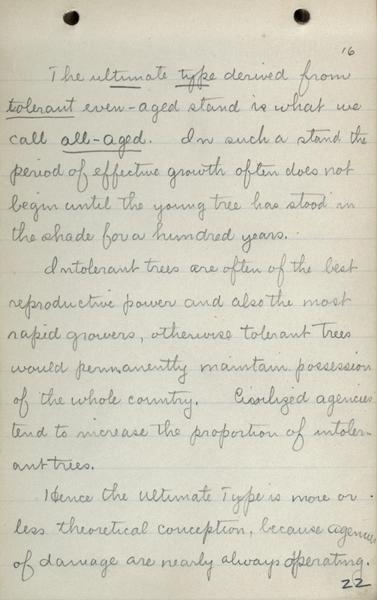 16
The ultimate type derived from
tolerant even-aged stand is what we
call all-aged. In such a stand the
period of effective growth often does not
begin until the young tree has stood in
the shade for a hundred years.
Intolerant trees are often of the best
reproductive power and also the most
rapid growers, otherwise tolerant trees
would permanently maintain possession
of the whole country. Civilized agencies
tend to increase the proportion of intoler-
ant trees.
Hence the ultimate Type is more or
less theoretical conception, because agencies
of damage are nearly always operating.
22